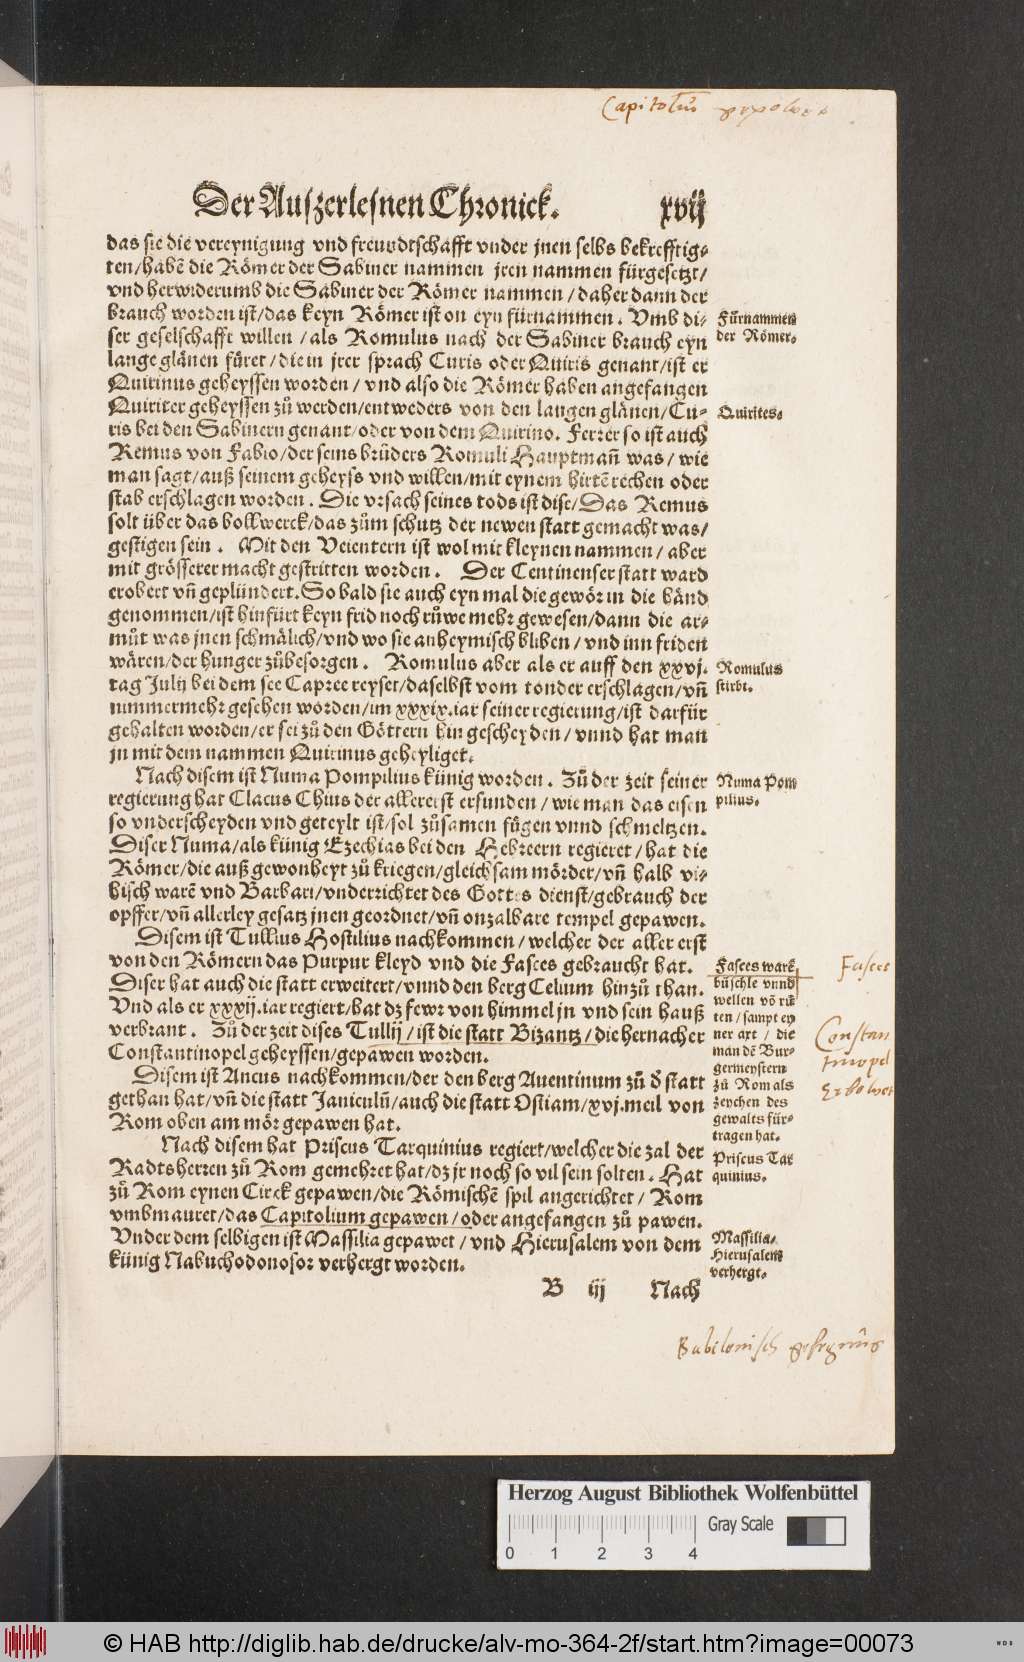 Capitoliũ
Der Auszerlesnen Chronick. xvij
das sie die vereynigung vnd freundtschafft vnder jnen selbs bekrefftig-
ten/habẽ die Römer der Sabiner nammen jren nammen fürgesetzt/
vnd herwiderumb die Sabiner der Römer nammen/daher dann der
brauch worden ist/das keyn Römer ist on eyn fürnammen. Vmb di-
ser geselschafft willen/als Romulus nach der Sabiner brauch eyn
lange glänen füret/die in jrer sprach Curis oder Quiris genant/ist er
Quirinus geheyssen worden/vnd also die Römer haben angefangen
Quiriter geheyssen zů werden/entweders von den langen glänen/Cu-
ris bei den Sabinern genant/oder von dem Quirino. Ferrer so ist auch
Remus von Fabio/der seins brüders Romuli Hauptmañ was/wie
man sagt/auß seinem geheyss vnd willen/mit eynem hirtẽ rechen oder
stab erschlagen worden. Die vrsach seines tods ist dise/Das Remus
solt über das bollwerck/das zům schutz der newen statt gemacht was/
gestigen sein. Mit den Veientern ist wol mit kleynen nammen/aber
mit grösserer macht gestritten worden. Der Centinenser statt ward
erobert vñ geplündert. So bald sie auch eyn mal die gewör in die händ
genommen/ist hinfürt keyn frid noch růwe mehr gewesen/dann die ar-
můt was jnen schmälich/vnd wo sie anheymisch bliben/vnd inn friden
wären/der hunger zůbesorgen. Romulus aber als er auff den xxvj.
tag Julij bei dem see Capree reyset/daselbst vom tonder erschlagen/vñ
nimmermehr gesehen worden/im xxxix.iar seiner regierung/ist darfür
gehalten worden/er sei zů den Göttern hin gescheyden/vnnd hat man
jn mit dem nammen Quirinus geheyliget.
Nach disem ist Numa Pompilius künig worden. Zů der zeit seiner
regierung hat Clacus Chius der allererst erfunden/wie man das eisen
so vnderscheyden vnd geteylt ist/sol zůsamen fůgen vnnd schmeltzen.
Diser Numa/als künig Ezechias bei den Hebreern regieret/hat die
Römer/die auß gewonheyt zů kriegen/gleich sam mörder/vñ halb vi-
hisch warẽ vnd Barbari/vnderrichtet des Gottes dienst/gebrauch der
opffer/vñ allerley gesatz jnen geordnet/vñ onzalbare tempel gepawen.
Disem ist Tullius Hostilius nachkommen/welcher der aller erst
von den Römern das Purpur kleyd vnd die Fasces gebraucht hat.
Diser hat auch die statt erweitert/vnnd den berg Celium hinzů than.
Vnd als er xxxij.iar regiert/hat dz fewr von himmel jn vnd sein hauß
verbrant. Zů der zeit dises Tullij/ist die statt Bizantz/die hernacher
Constantinopel geheyssen/gepawen worden.
Disem ist Ancus nachkommen/der den berg Auentinum zů d̕ statt
gethan hat/vñ die statt Janiculũ/auch die statt Ostiam/xvj.meil von
Rom oben am mör gepawen hat.
Nach disem hat Priscus Tarquinius regiert/welcher die zal der
Radtsherren zů Rom gemehret hat/dz jr noch so vil sein solten. Hat
zů Rom eynen Circk gepawen/die Römischẽ spil angerichtet/Rom
vmbmauret/das Capitolium gepawen/oder angefangen zů pawen.
Vnder dem selbigen ist Massilia gepawet/vnd Hierusalem von dem
künig Nabuchodonosor verhergt worden.
B iij Nach
Fürnammen
der Römer.
Quirites.
Romulus
stirbt.
Numa Pom
pilius.
Fasces warẽ
büschle vnnd
wellen võ rů
ten/sampt ey
ner axt/die
man dẽ Bur-
germeystern
zů Rom als
zeychen des
gewalts für-
tragen hat.
Priscus Tar
quinius.
Massilia.
Hierusalem
verhergt.
Fasces
Constan
tinopel
Erbolwet
Babilonisch
Herzog August Bibliothek Wolfenbüttel
Gray Scale
0 1 2 3 4
© HAB http://diglib.hab.de/drucke/alv-mo-364-2f/start.htm?image=00073